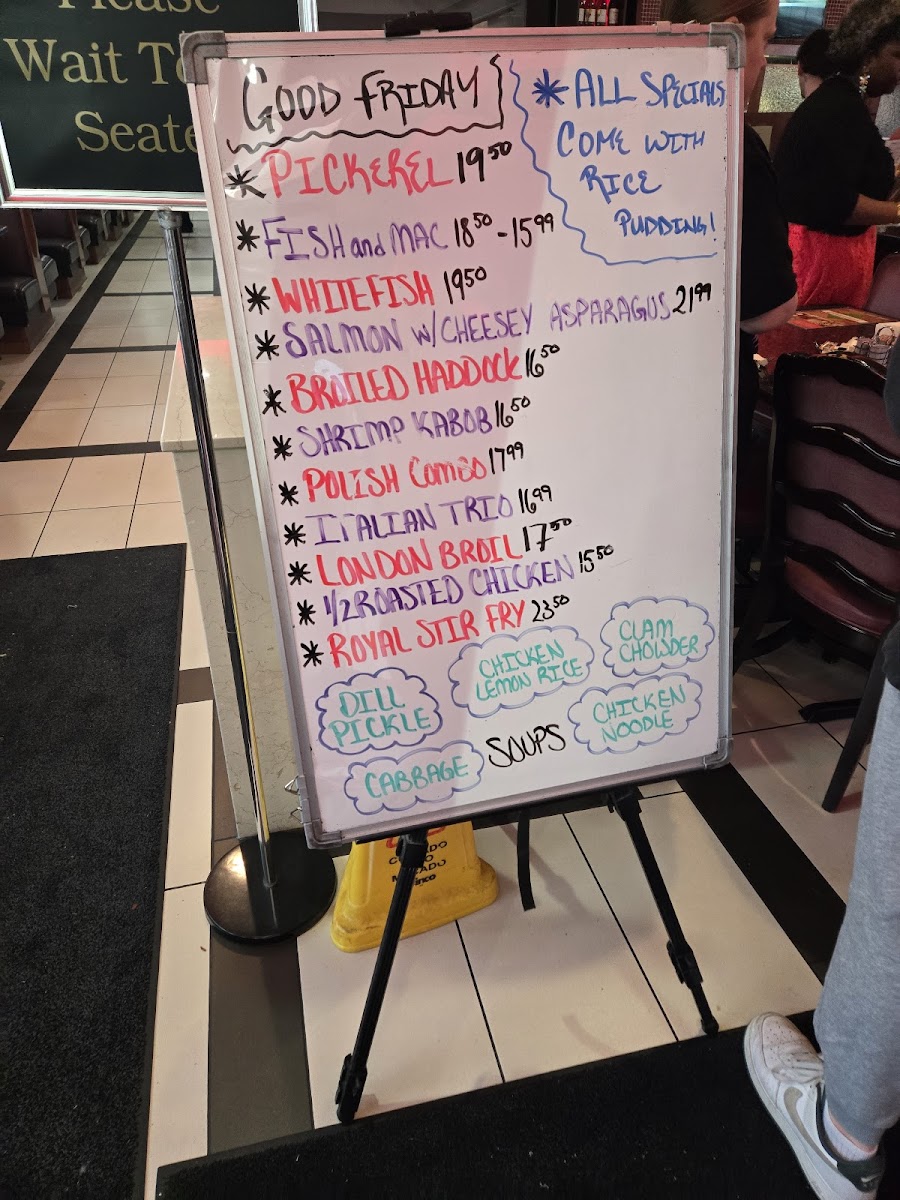 Please
Wait To
Seate
GOOD FRIDAY
* ALL SPECIALS
COME WITH
RICE
PUDDING!
* PICKEREL 19 50
* FISH and MAC 18 50 - 15 99
* WHITEFISH 19 50
* SALMON W/ CHEESEY ASPARAGUS 21 99
* BROILED HADDOCK 16 50
* SHRIMP KABOB 16 50
* POLISH COMBO 17 99
* ITALIAN TRIO 16 99
* LONDON BROIL 17 50
* 1/2 ROASTED CHICKEN 15 50
* ROYAL STIR FRY 23 50
DILL
PICKLE
CHICKEN
LEMON RICE
CLAM
CHOWDER
CABBAGE
SOUPS
CHICKEN
NOODLE